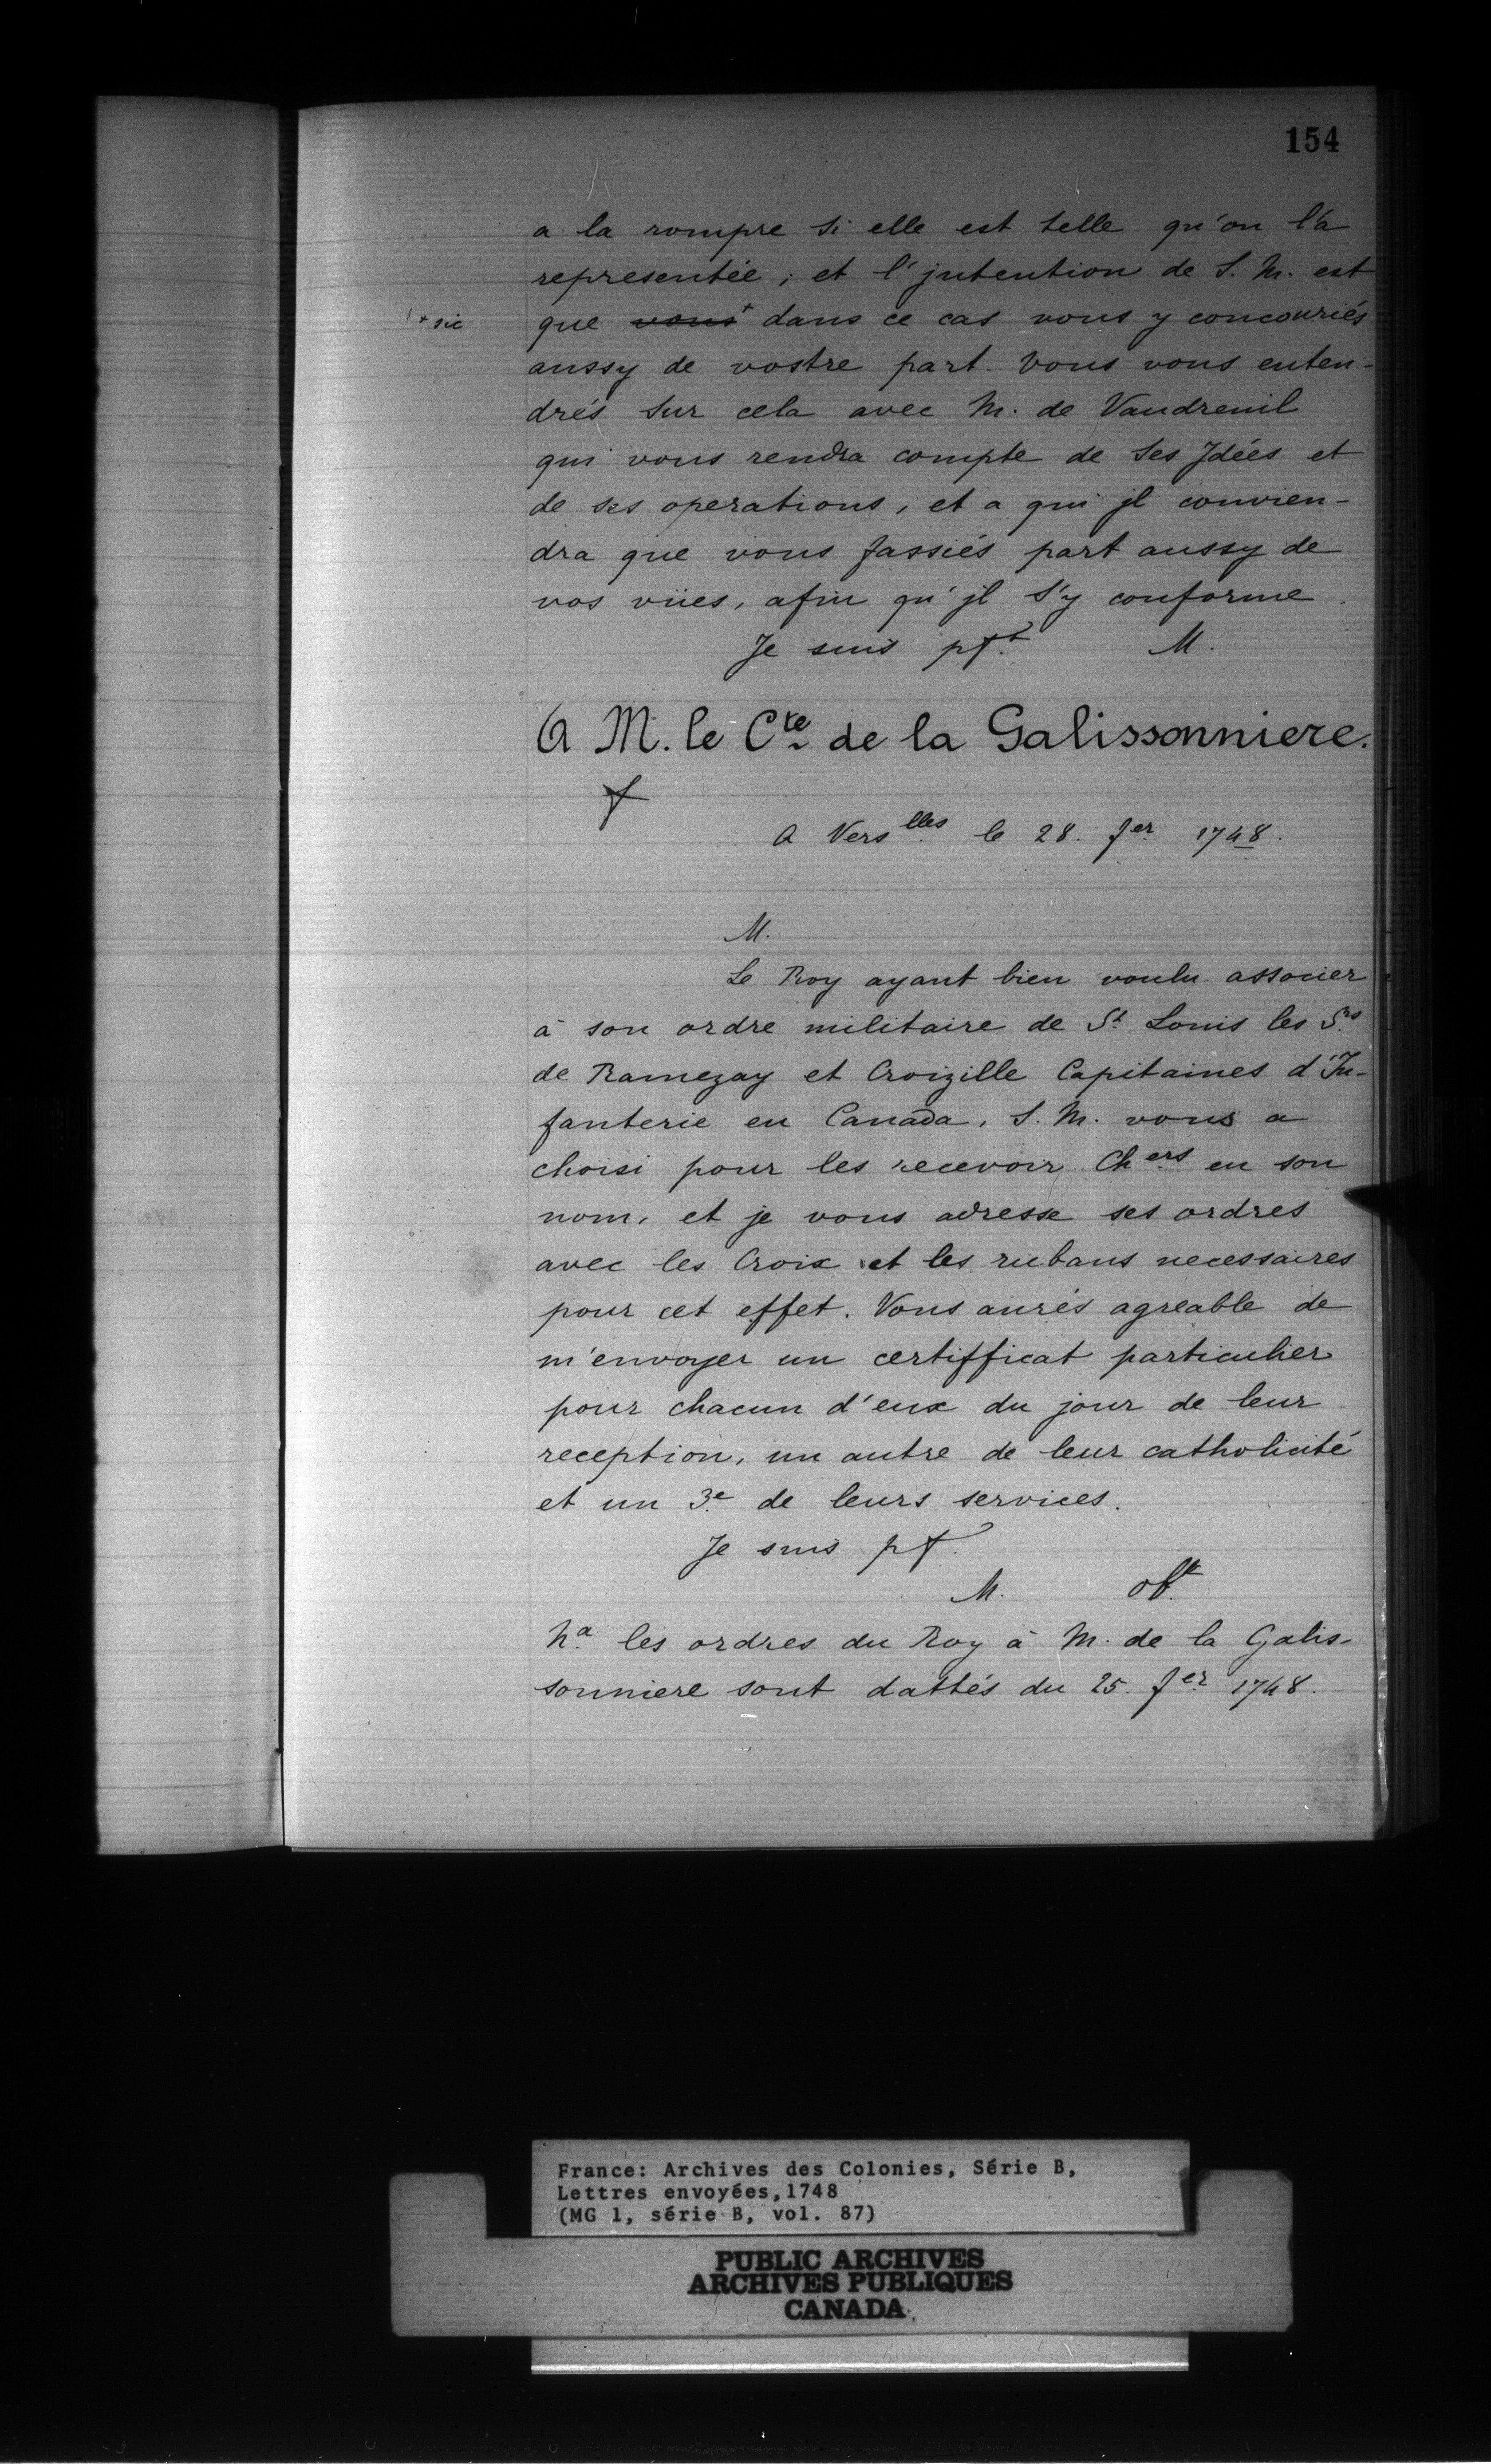 154
a la rompre si elle est telle qu'on l'a
representée ; et l'jntention de S. M. est
+ sic
que vous+ dans ce cas vous y concouriés
aussy de vostre part. Vous vous enten-
drés sur cela avec M. de Vaudreuil
qui vous rendra compte de ses Jdées et
de ses operations, et a qui jl convien-
dra que vous fassiés part aussy de
vos vües, afin qu'jl s'y conforme.
Je suis pft. M.
A M. le Cte de la Galissonniere.
A Verslles le 28. fer 1748.
M.
Le Roy ayant bien voulu associer
à son ordre militaire de St Louis les Srs
de Ramezay et Croizille Capitaines d'In-
fanterie en Canada, S. M. vous a
choisi pour les recevoir Chers en son
nom, et je vous adresse ses ordres
avec les Croix et les rubans necessaires
pour cet effet. Vous aurés agreable de
m'envoyer un certifficat particulier
pour chacun d'eux du jour de leur
reception, un autre de leur catholicité
et un 3e de leurs services.
Je suis pf.
M.
Na les ordres du Roy à M. de la Galis-
sonniere sont dattés du 25. fer 1748.
France: Archives des Colonies, Série B,
Lettres envoyées, 1748
(MG 1, série B, vol. 87)
PUBLIC ARCHIVES
ARCHIVES PUBLIQUES
CANADA